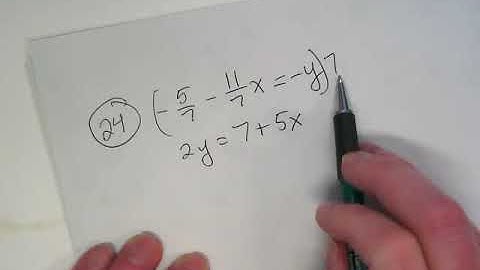 24 (-5/7 - 11/7 x = -y)7
2y = 7 + 5x